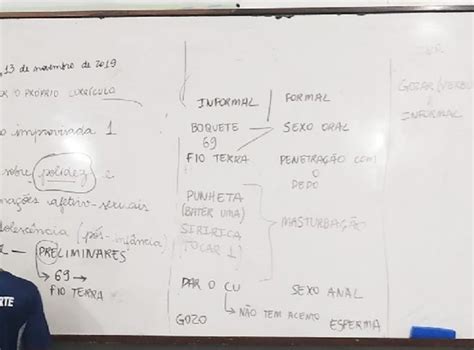 13 de novembro de 2019
O PRÓPRIO CURRÍCULO
improvisada 1
sobre polidez e
afetivo-sexuais
adolescência (pós-infância)
2 - PRELIMINARES
69
FIO TERRA
INFORMAL / FORMAL
BOQUETE
69
SEXO ORAL
FIO TERRA
PENETRAÇÃO COM
O
DEDO
PUNHETA
(BATER UMA)
SIRIRICA
(TOCAR 1)
MASTURBAÇÃO
DAR O CU
SEXO ANAL
NÃO TEM ACENTO
GOZO
ESPERMA
GOZAR (VERBO)
INFORMAL
RTE